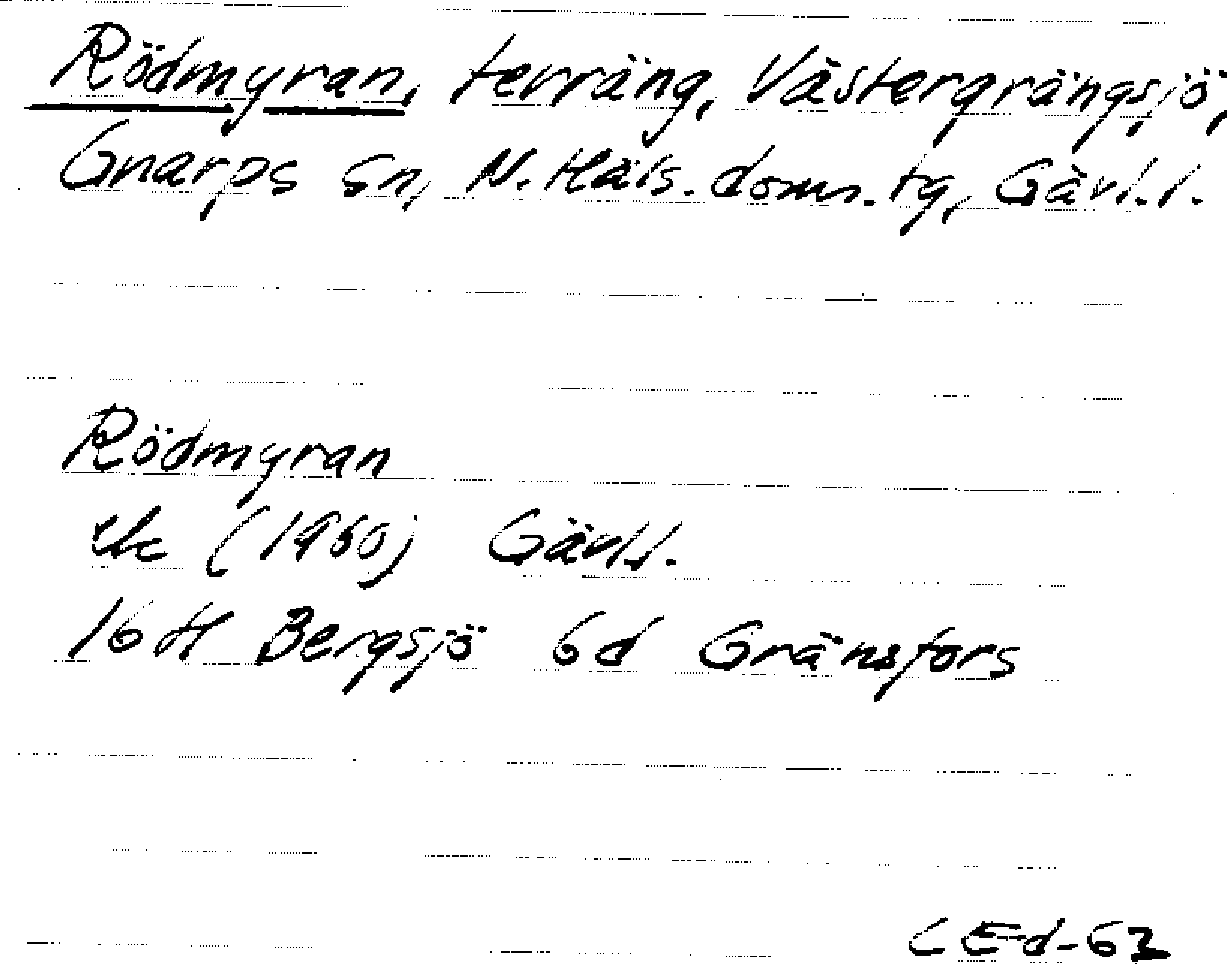 Rödmyran, terräng, Västergrängsjö,
Gnarps sn, N. Häls. doms. tg, Gävl.l.
Rödmyran
ek (1960) Gävl.l.
16H Bergsjö 6d Gränsfors
CEd-62